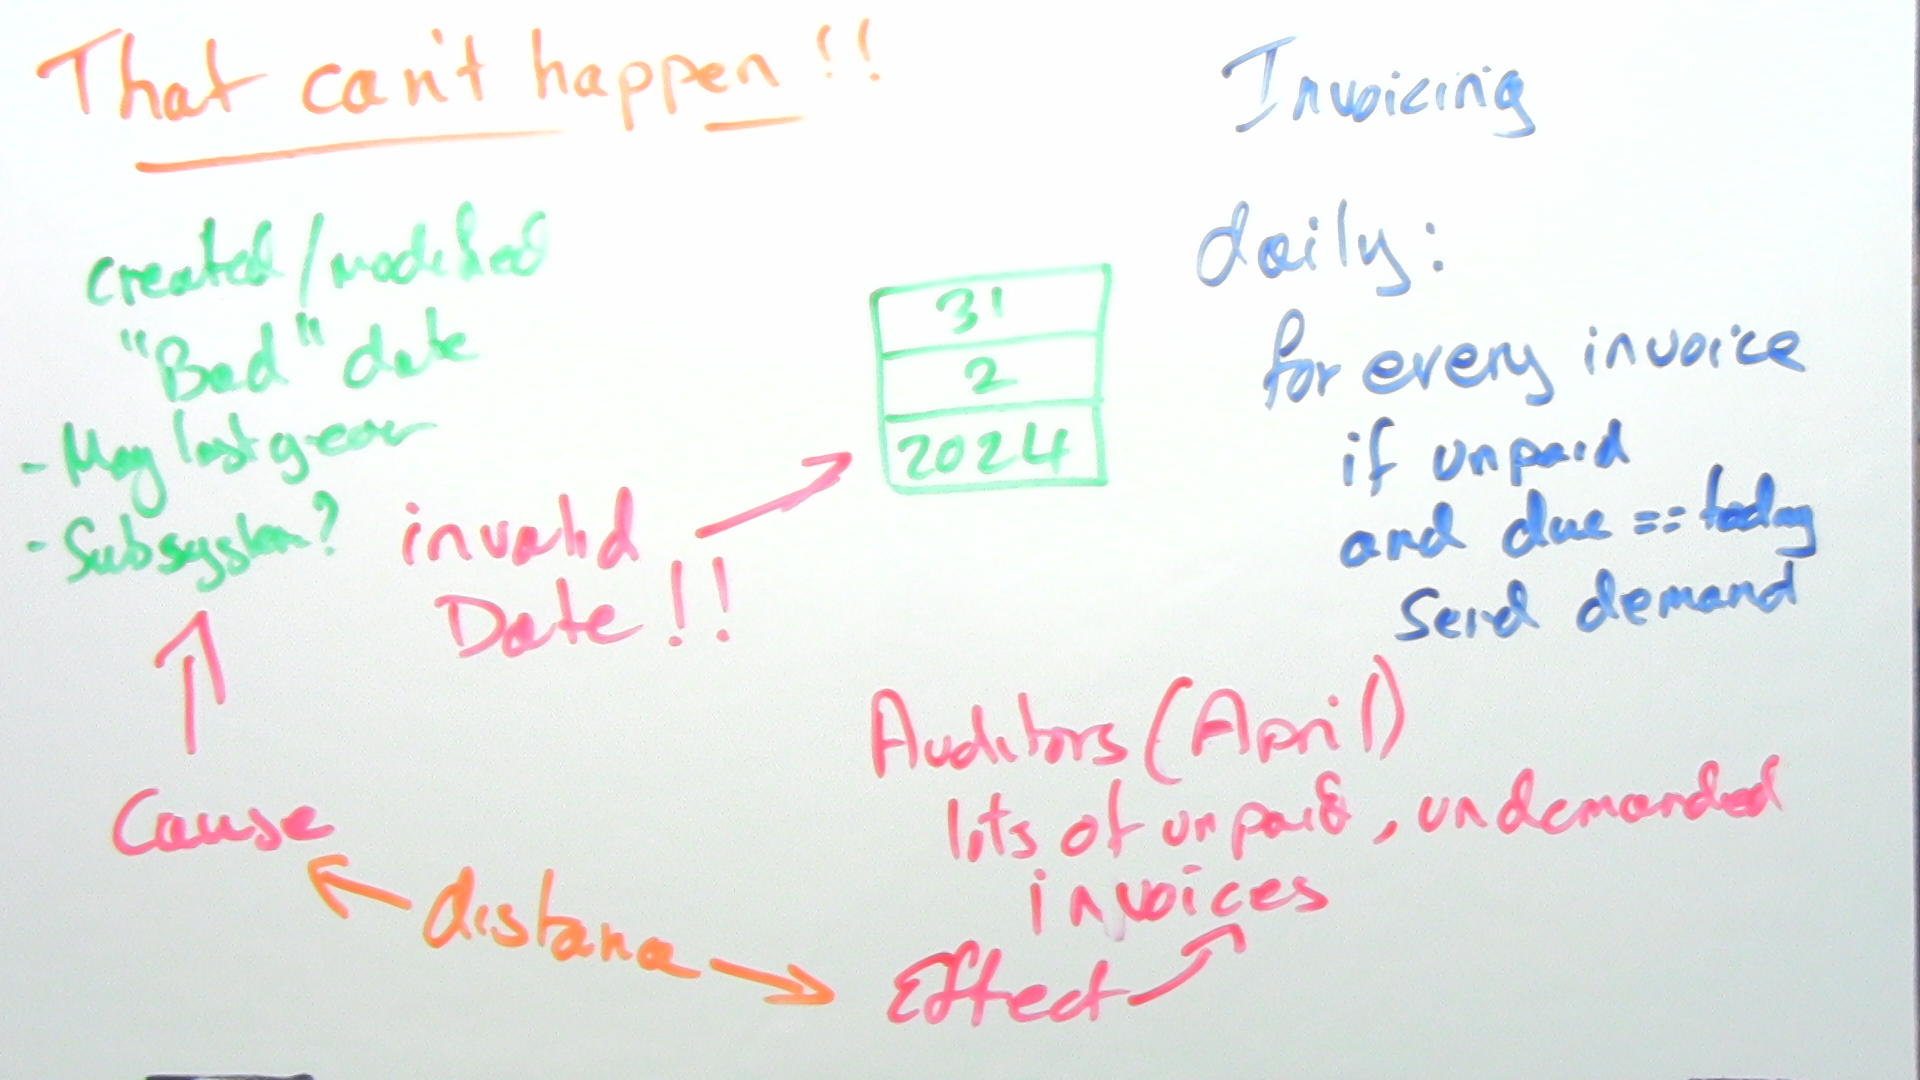 That can't happen!!
created/modified
"Bad" date
- May last year
- Subsystem?
invalid
Date!!
31
2
2024
Invoicing
daily:
for every invoice
if unpaid
and due == today
Send demand
Auditors (April)
lots of unpaid, undemanded
invoices
Cause
distance
Effect